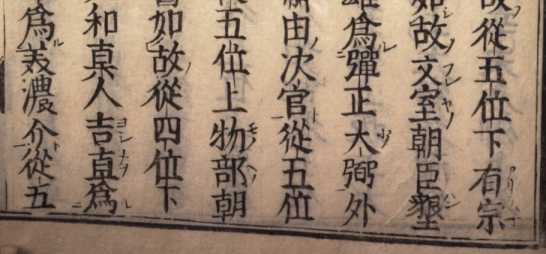 故從五位下有宗
如故文室朝臣墾
雄爲彈正大弼外
由次官從五位
五位上物部朝
如故從四位下
和真人吉直爲
爲美濃介從五